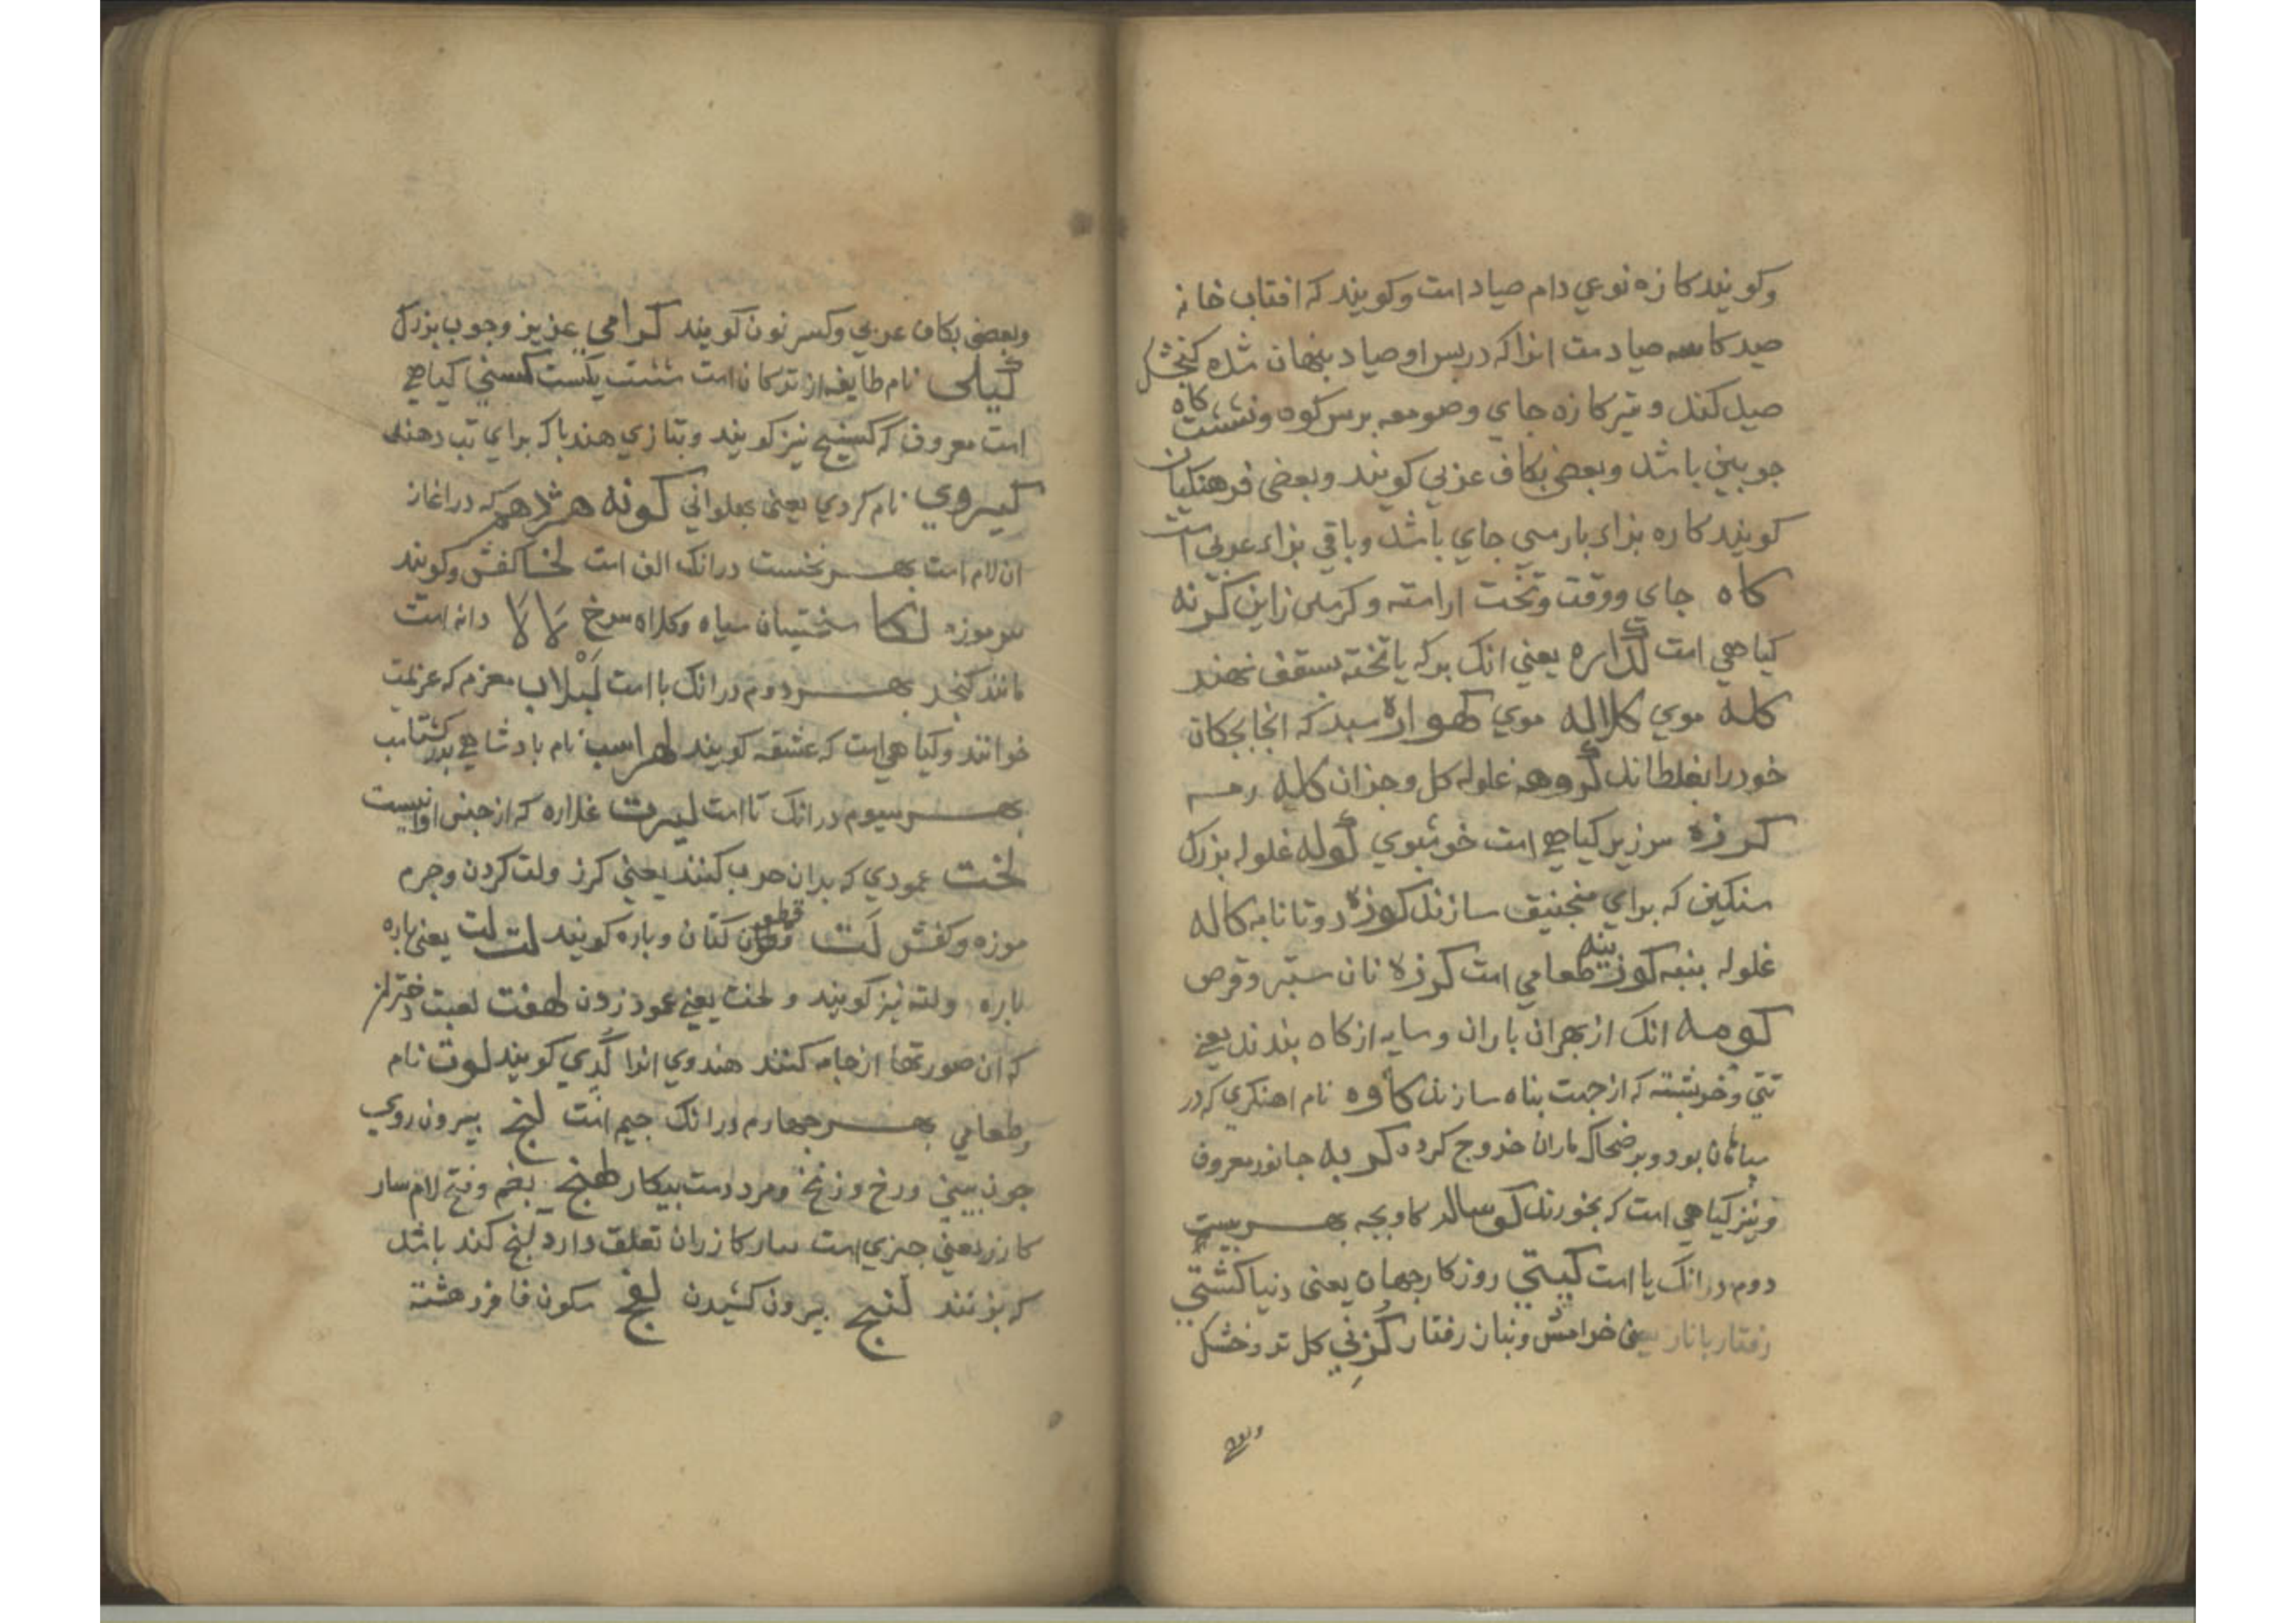 وکویند کازه نوعی دام صیاد است وکویند که افتاب خانه
صید کاسه صیادست انرا که در پس او صیاد پنهان شده کنجشک
صید کند و نیز کازه جای وصومعه بر سر کوه ونشست کاه
جوبین باشد وبعضی بکاف عربی کویند وبعضی فرهنکیان
کویند کاره براء بارسی جای باشد وباقی بزاء عربی است
کاه جای ووقت وتخت اراسته و کرنه
کیاهی است کداره یعنی انک بوکه یا تخته بسقف نهند
کله موی کلاله موی کهواره سبدکه انجا بجکان
خود را بغلطانند کروهه غلوله کل وجزان کله رمه
کرزه سرزیر کیاهی است خوشبوی کوله غلوله بزرک
سنکین که برای منجنیق سازند کوزه دوتا نامه کاله
غلوله بنبه کوزینه طعامی است کرزه نان ستبر وقرص
کومه انک از بهران باران وسایه از کاه بندند یعنی
تتی وخربشته که از جهت بناه سازند کاوه نام اهنکری که در
بود وبر ضحاک ماران خروج کرد کربه جانور معروف
ونیز کیاهی است که بخورند کوساله کاوبجه بهر بیست
دوم در انک یا است کیتی روزکار جهان یعنی دنیا کشتی
رفتار بانار یعنی خرامش وبنان رفتار کزنی کل تر وخشک
وبعضی
وبعضی بکاف عربی وکسر نون کویند کرامی عزیز وجوب بزرک
کیلی نام طایفه از ترکان است شست یکست کسنی کیاهی
است معروف که کسنیج نیز کویند وبتازی هندبا که برای تب دهند
کیروی نام کردی یعنی بهلوانی کونه هژدهم که در اغاز
ان لام است بهر نخست در انک الف است لخا کفش وکویند
سرموزه لکا سختیان سیاه وکلاه سرخ لالا دانه است
مانند کنجد بهر دوم در انک با است لبلاب معزم که عزیمت
خوانند وکیاهی است که عشقه کویند لهراسب نام بادشاهی بدر کشتاسب
بهر سیوم در انک تا است لیرت غداره که از جنس اوانیست
لخت عمودی که بدان حرب کنند یعنی کرز ولت کردن وجرم
موزه وکفش لت قطعه کتان وباره کویند لت لت یعنی باره
باره ولته نیز کویند و لخت یعنی عمود زدن لهفت لعبت دخترانر
که ان صورتها از جامه کنند هندوی انرا کدی کویند لوت نام
وطعامی بهر جهارم در انک جیم است لنج بیرون روی
جون بینی ورخ وزنخ ومرد دست بیکار لهنج بضم وفتح لام سار
کازر یعنی جیزی است سار کازران تعلق دارد لنج کند باشد
که بزنند لنج بیرون کشیدن لفج سکون فا فرو هشته